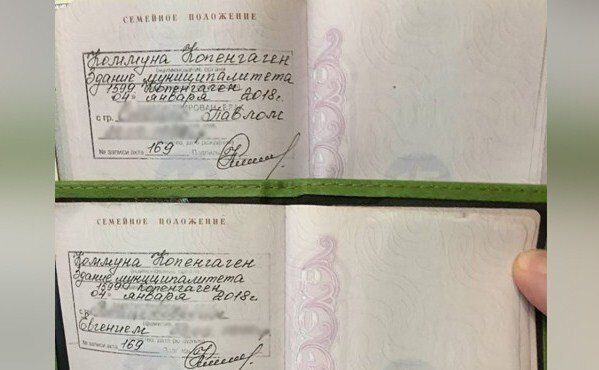 СЕМЕЙНОЕ ПОЛОЖЕНИЕ
Коммуна Копенгаген
Здание муниципалитета
1599 Копенгаген
04 января 2018г.
с гр.
Павлом
№ записи акта 169
СЕМЕЙНОЕ ПОЛОЖЕНИЕ
Коммуна Копенгаген
Здание муниципалитета
1599 Копенгаген
04 января 2018г.
Евгением
№ записи акта 169